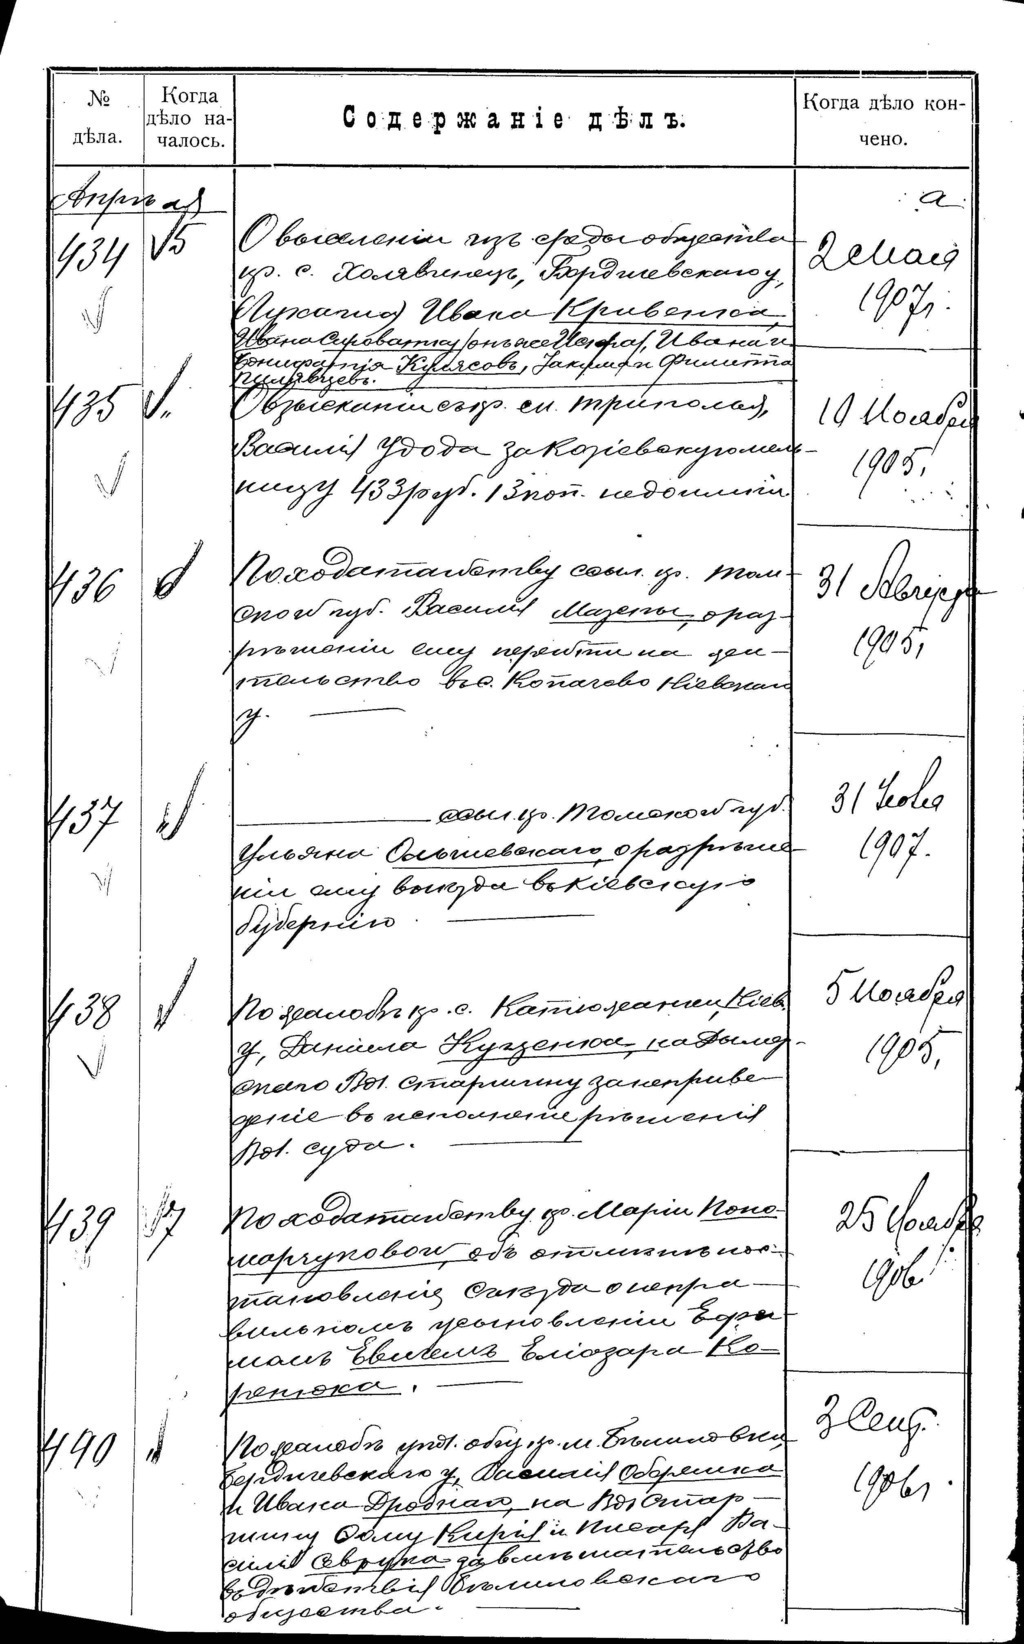 № дѣла.
Когда дѣло началось.
Содержаніе дѣлъ.
Когда дѣло кончено.
Апрѣля
434
5
О выселеніи изъ среды общества
кр. с. Холявинецъ, Бердичевскаго у,
Ивана Кривенка,
Ивана Сироватку, Ивана и
Кулясовъ, Филиппа
2 Мая
1907г.
435
О взысканіи съ кр. с. Триполья,
Василія Удода за Козіевскую мель-
ницу 433 руб. 13 коп. недоимки
10 Ноября
1905,
436
По ходатайству ссыл. кр. Том-
ской губ. Василія Мазепы, о раз-
рѣшеніи ему перейти на жи-
тельство въ с. Копачево Кіевскаго
у.
31 Августа
1905,
437
ссыл. кр. Томской губ.
Ульяна Ольшевскаго, о разрѣше-
ніи ему въѣзда въ Кіевскую
губернію
31
1907.
438
По жалобѣ кр. с. Катюжанки, Кіев.
у, Даніила Кузенка, на Дымер-
скаго Вол. старшину за неприве-
деніе въ исполненіе рѣшенія
Вол. суда.
5 Ноября
1905,
439
7
По ходатайству кр. Маріи Поно-
марчуковой, объ отмѣнѣ пос-
тановленія Съѣзда о непра-
вильномъ усыновленіи Ефи-
момъ Евичемъ Еліазара Ко-
ренюка.
25 Ноября
1906
440
По жалобѣ упол. общ. кр. м. Бѣлиловки,
Бердичевскаго у, Василія
и Ивана на Вол. Стар-
шину и Писаря Ва-
силія за вмѣшательство
въ дѣйствія Бѣлиловскаго
общества.
3 Сент.
1906г.